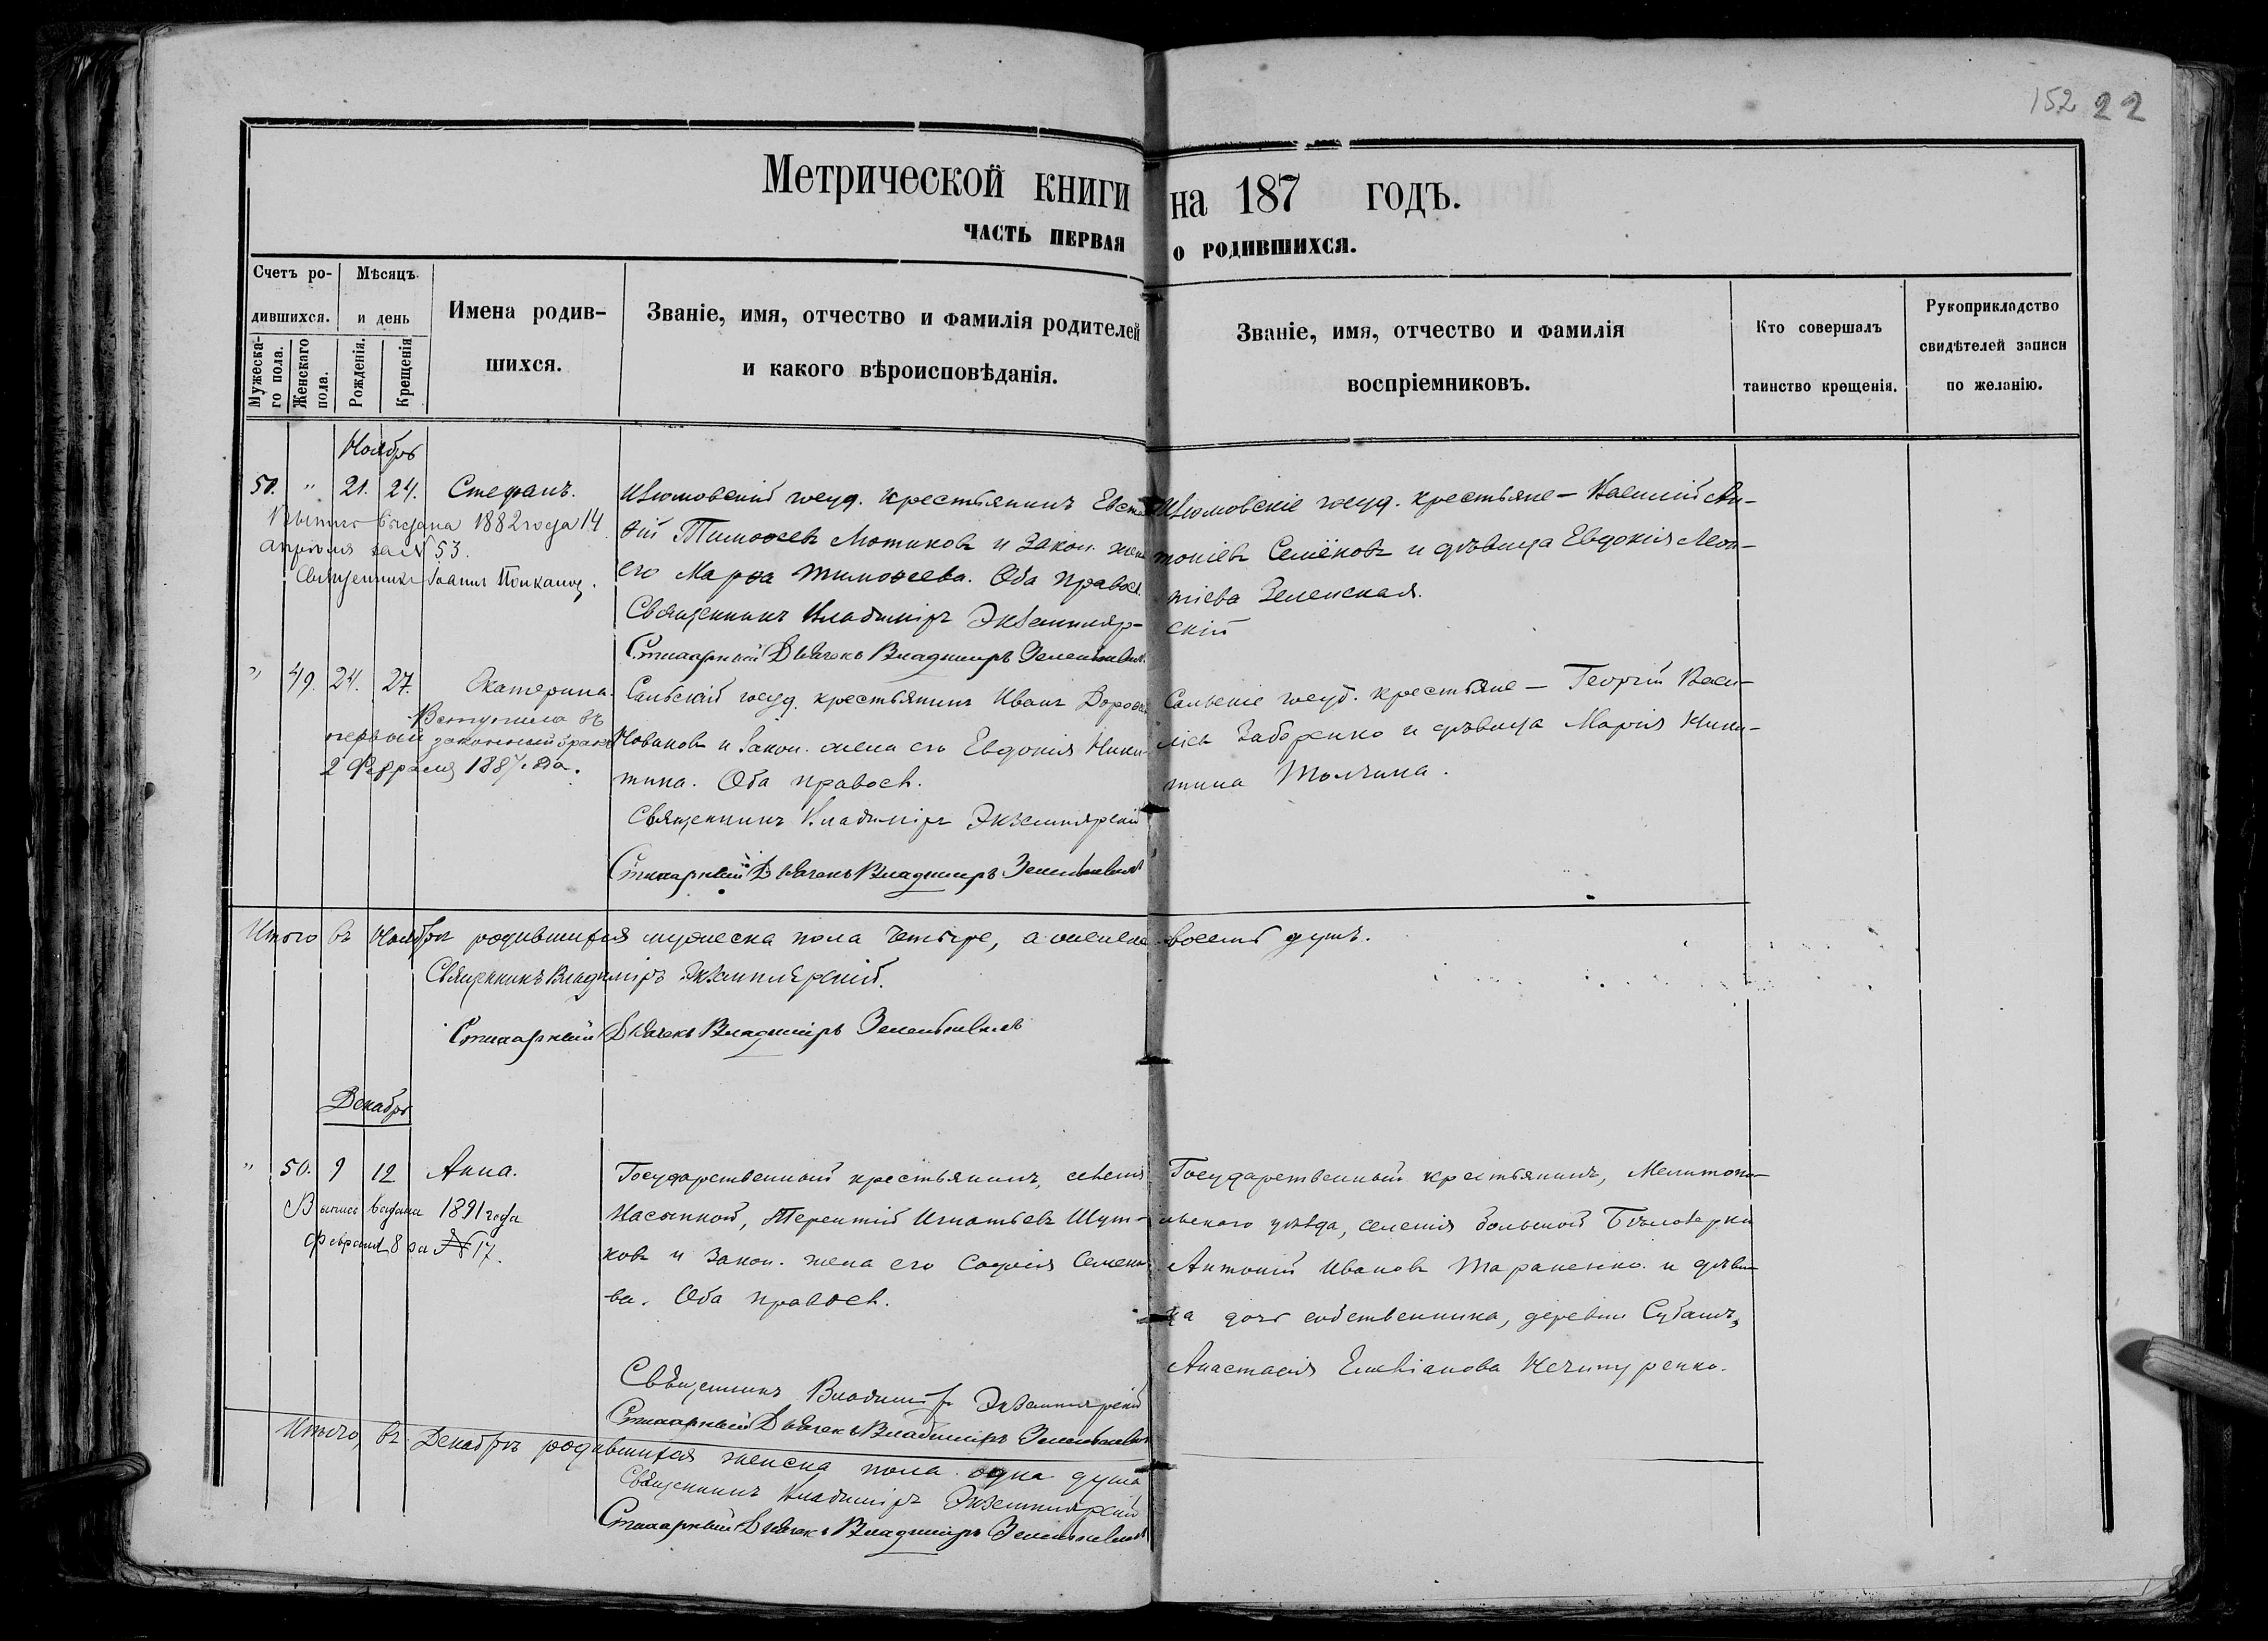 152 22
Метрической книги на 187 годъ.
ЧАСТЬ ПЕРВАЯ О РОДИВШИХСЯ.
Счетъ ро-
дившихся.
Мужеска-
го пола.
Женскаго
пола.
Мѣсяцъ
и день
Рожденія.
Крещенія
Имена родив-
шихся.
Званіе, имя, отчество и фамилія родителей
и какого вѣроисповѣданія.
Званіе, имя, отчество и фамилія
воспріемниковъ.
Кто совершалъ
таинство крещенія.
Рукоприкладство
свидѣтелей записи
по желанію.
Ноябрь
50. " 21. 24. Стефанъ.
выдана 1882 года 14
апрѣля за N 53.
Священникъ Іоаннъ
Изюмовскій госуд. крестьянинъ
Тимоѳеевъ Мотиковъ и закон. жена
его Марѳа Тимоѳеева. Оба правосл.
Священникъ Владиміръ Экземпляр-
скій
Стихарный Дьячекъ Владиміръ
Изюмовскіе госуд. крестьяне – Василій Ан-
тоніевъ Семёновъ и дѣвица Евдокія Леон-
тіева Зеленская.
" 49. 24. 27. Екатерина.
Вступила въ
первый законный бракъ
2 Февраля 1887 года.
госуд. крестьянинъ Иванъ
Новаковъ и закон. жена его Евдокія Ники-
тина. Оба правосл.
Священникъ Владиміръ Экземплярскій
Стихарный Дьячекъ Владиміръ
госуд. крестьяне – Георгій Васи-
ліевъ и дѣвица Марія Ники-
тина Толчина.
Итого въ Ноябрѣ родившихся мужеска пола четыре, а женска восемь душъ.
Священникъ Владиміръ Экземплярскій.
Стихарный Дьячекъ Владиміръ
Декабрь
" 50. 9 12 Анна.
выдана 1891 года
февраля 8 за N 17.
Государственный крестьянинъ, селенія
Насыпной, Терентій Игнатьевъ Шут-
ковъ и закон. жена его Софія Семено-
ва. Оба правосл.
Священникъ Владиміръ Экземплярскій
Стихарный Дьячекъ Владиміръ
Государственный крестьянинъ, Мелитопо-
льскаго уѣзда, селенія Большой Бѣлозерки
Антоній Ивановъ Тараненко и дѣви-
ца дочь собственника, деревни Субашъ,
Анастасія Емеліанова Нечипуренко.
Итого, въ Декабрѣ родившихся женска пола одна душа,
Священникъ Владиміръ Экземплярскій
Стихарный Дьячекъ Владиміръ